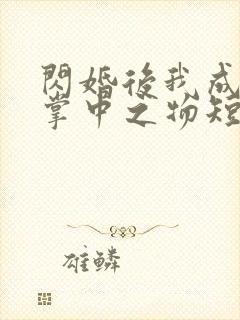 閃婚後我成
掌中之物短
雄鱗